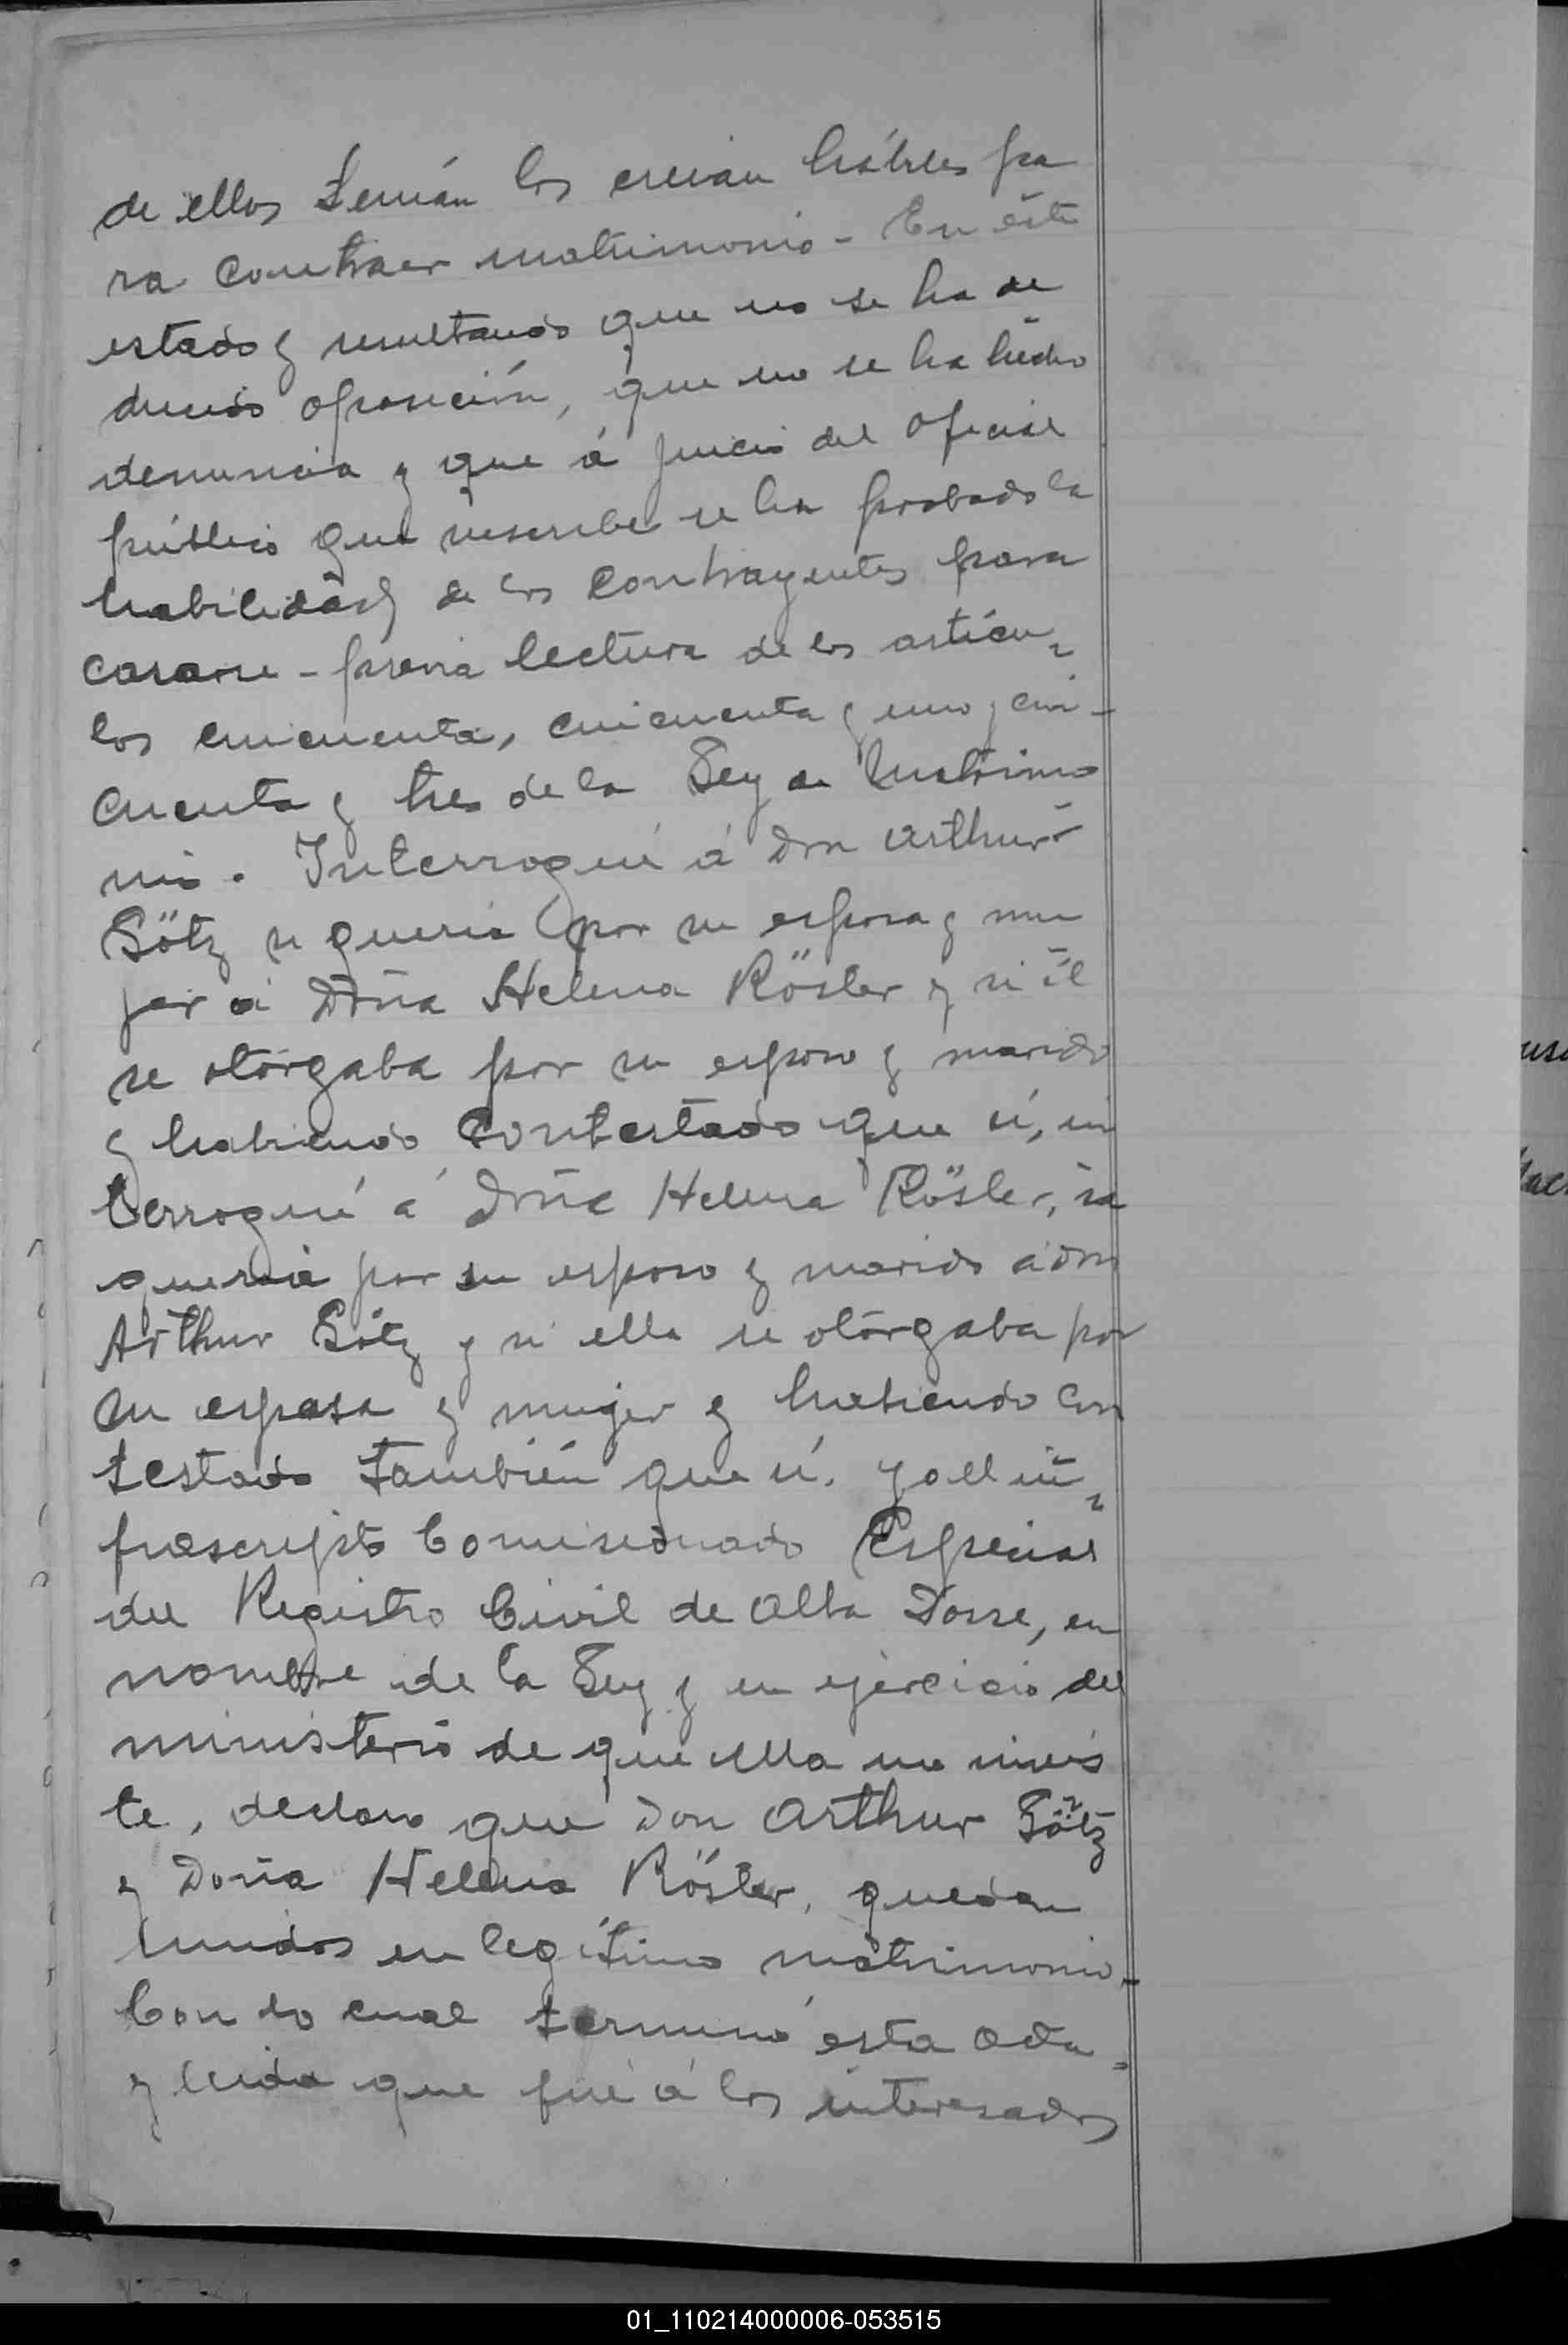 de ellos tenían los creian hábiles pa
ra contraer matrimonio - En éste
estado y resultando que no se ha de
ducido oposición, que no se ha hecho
denuncia y que á juicio del Oficial
público que suscribe se ha probado la
habilidad de los contrayentes para
casarse - previa lectura de los artícu-
los cincuenta, cincuenta y uno y cin-
cuenta y tres de la Ley de Matrimo
nio. Interrogué á Don Arthur
Götz si queria por su esposa y mu
jer á Doña Helena Rösler y si él
se otorgaba por su esposo y marido
y habiendo contestado que sí, in
terrogué á Doña Helena Rösler, si
queria por su esposo y marido á don
Arthur Götz y si ella se otorgaba por
su esposa y mujer y habiendo con
testado también que sí. yo el in-
frascripto Comisionado Especial
del Registro Civil de Alta Dosre, en
nombre de la Ley y en ejercicio del
ministerio de que ella me invis
te, declaro que Don Arthur Götz
y Doña Helena Rösler, quedan
unidos en legítimo matrimonio -
Con lo cual terminó esta acta -
y leida que fué á los interesados
usc
01_110214000006-053515